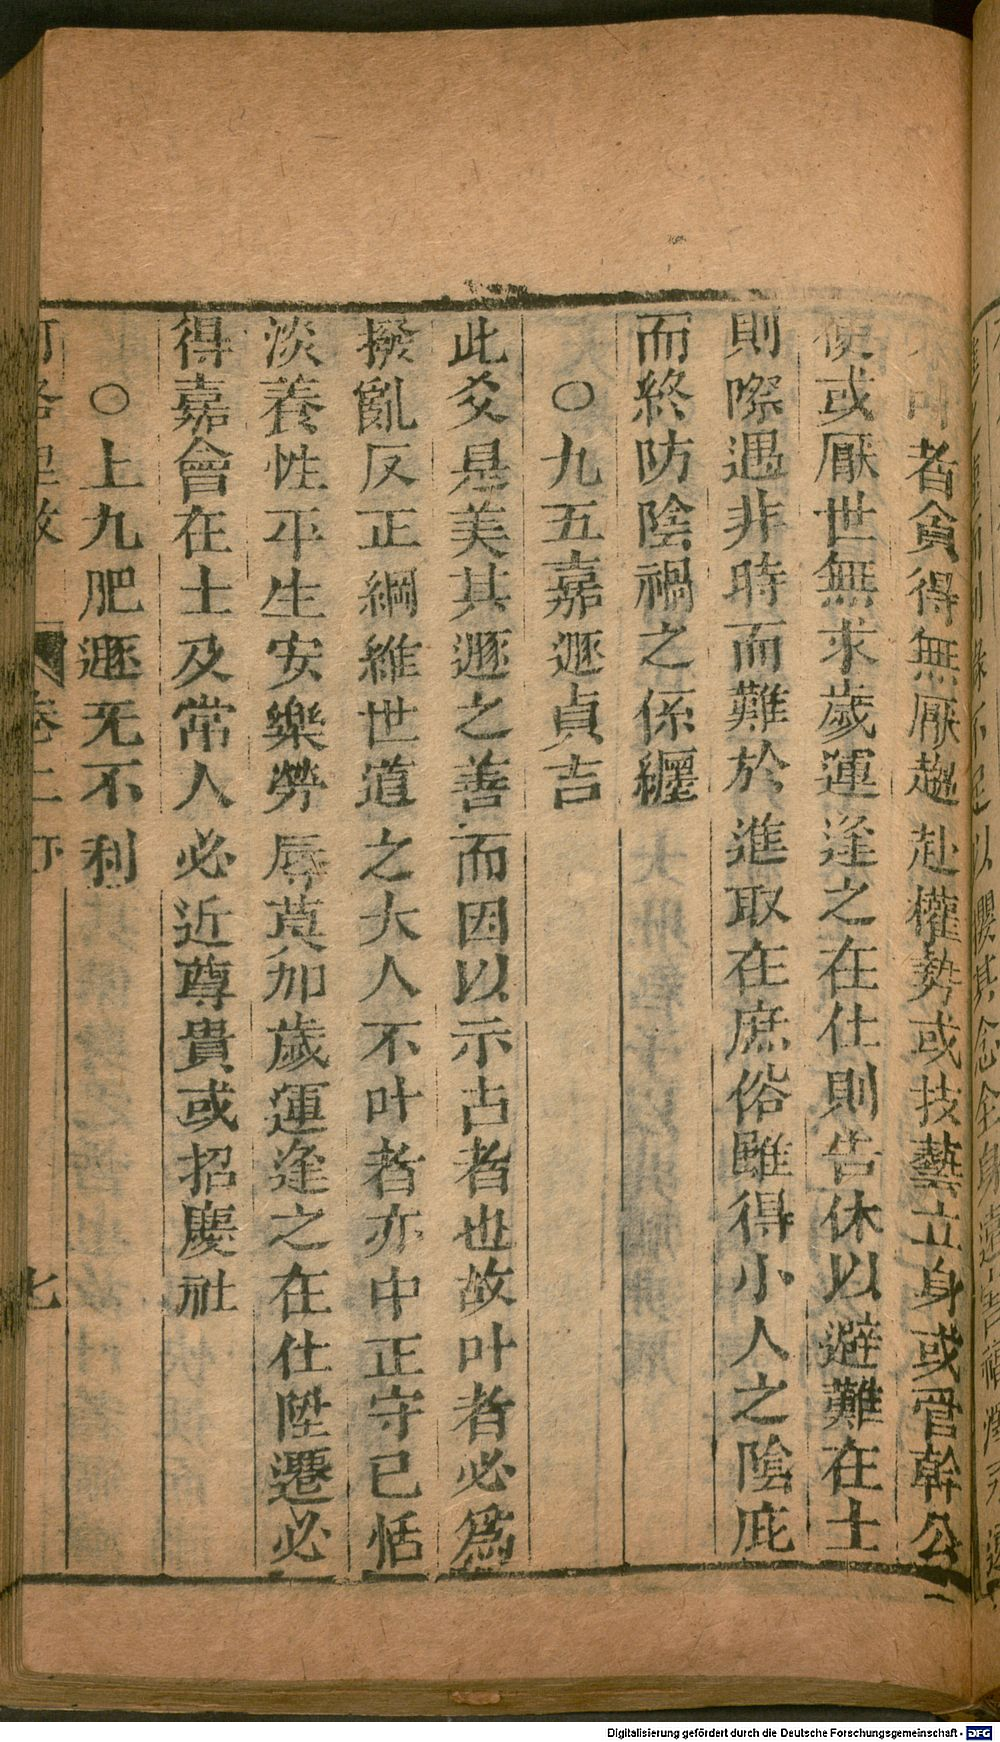 不叶者貪得無厭趨赴權勢或技藝立身或管幹公
使或厭世無求歲運逢之在仕則告休以避難在士
則際遇非時而難於進取在庶俗雖得小人之陰庇
而終防陰禍之係纏
○九五嘉遯貞吉
此爻是美其遯之善而因以示占者也故叶者必爲
撥亂反正綱維世道之大人不叶者亦中正守己恬
淡養性平生安樂勞辱莫加歲運逢之在仕陞遷必
得嘉會在士及常人必近尊貴或招慶祉
○上九肥遯无不利
卷二
七
Digitalisierung gefördert durch die Deutsche Forschungsgemeinschaft - DFG